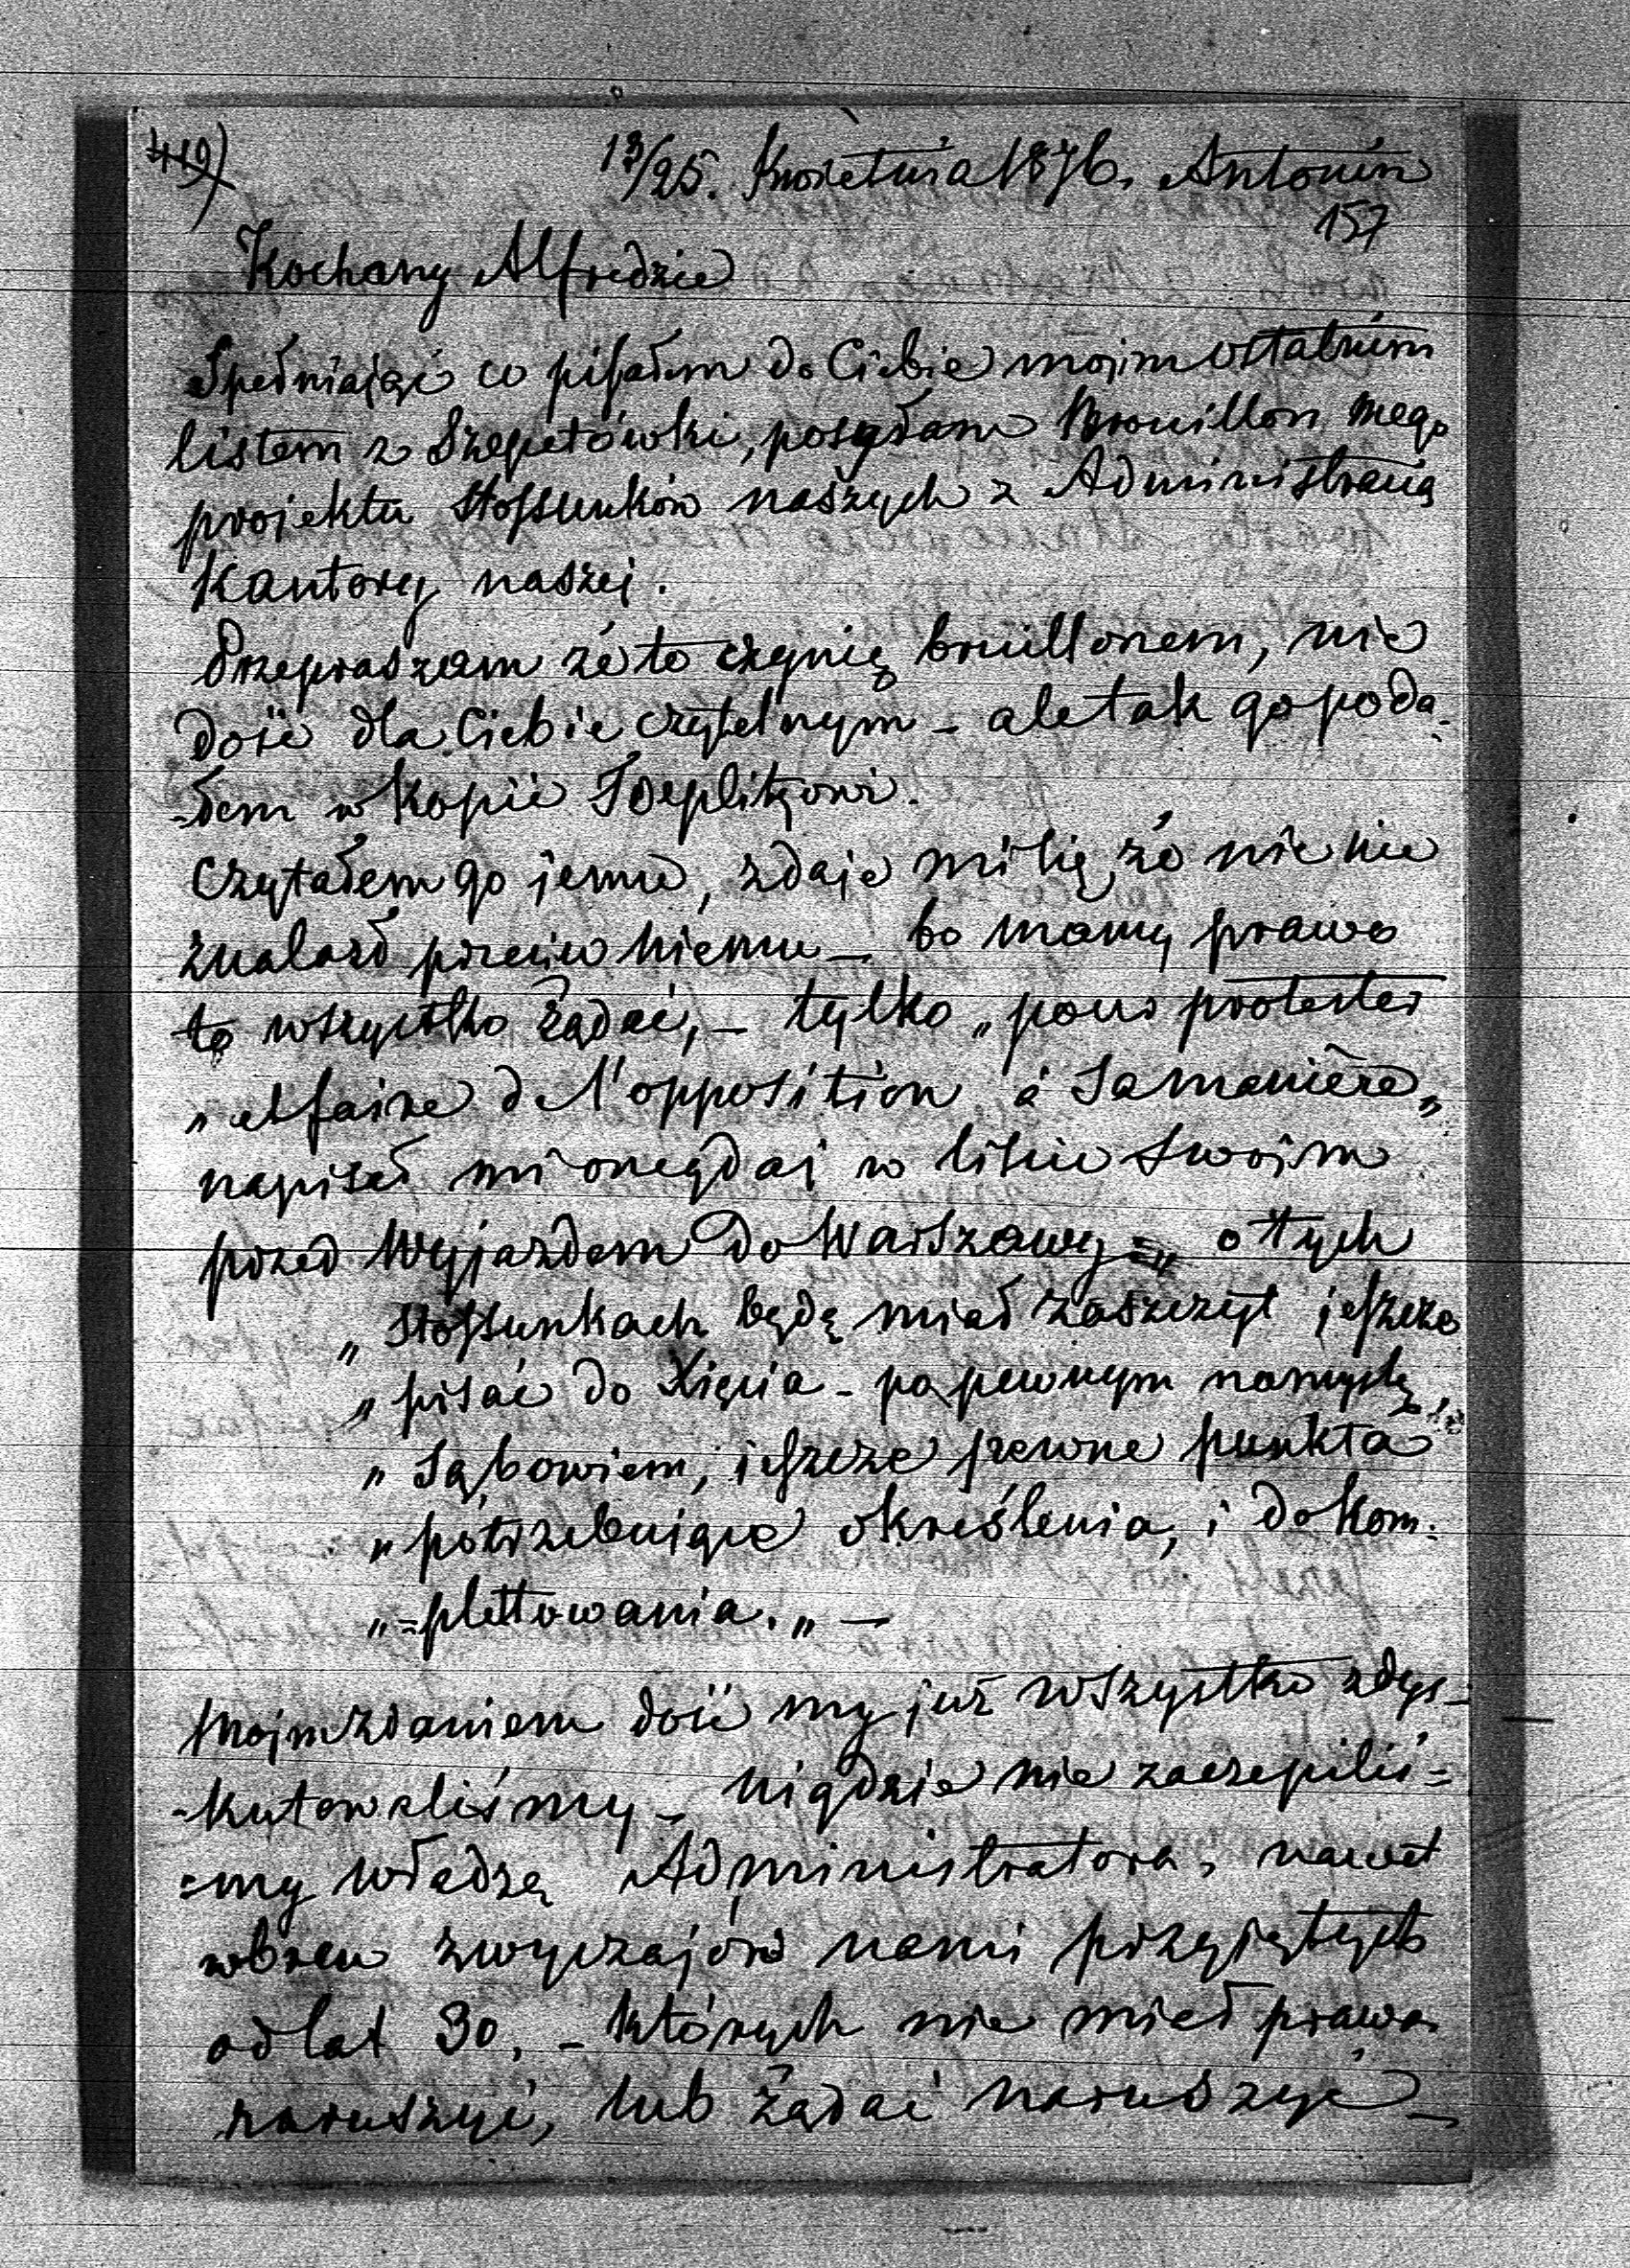 119)
13/25. Kwietnia 1876. Antonin
157
Kochany Alfredzie
Spełniając co pisałem do Ciebie mojim ostatnim
listem z Szepetówki, posyłam Brouillon mego
projektu stossunków naszych z Administracią
Kantory naszej.
Przepraszam że to czynię bruillonem, nie
dość dla Ciebie czytelnym - ale tak go poda-
-łem w kopii Toeplitzowi.
Czytałem go jemu, zdaje mi się że nic nie
znalazł przeciw niemu - bo mamy prawo
to wszystko żądać, - tylko „pour protester
„et faire de l'opposition à sa manière„
napisał mi onegdaj w liście swojim
przed wyjazdem do Warszawy = „o tych
„stossunkach będę miał zaszczyt jeszcze
„pisać do Xięcia - po pewnym namyśle
„są bowiem, jeszcze pewne punkta
„potrzebujące określenia, i dokom-
„=plettowania.„ -
Mojim zdaniem dość my już wszystko zdys-
-kutowaliśmy - nigdzie nie zaczepiliś=
=my władzę Administratora, nawet
wbrew zwyczajów nami przyjętych
od lat 30, - których nie miał prawa
naruszyć, lub żądać naruszyć -